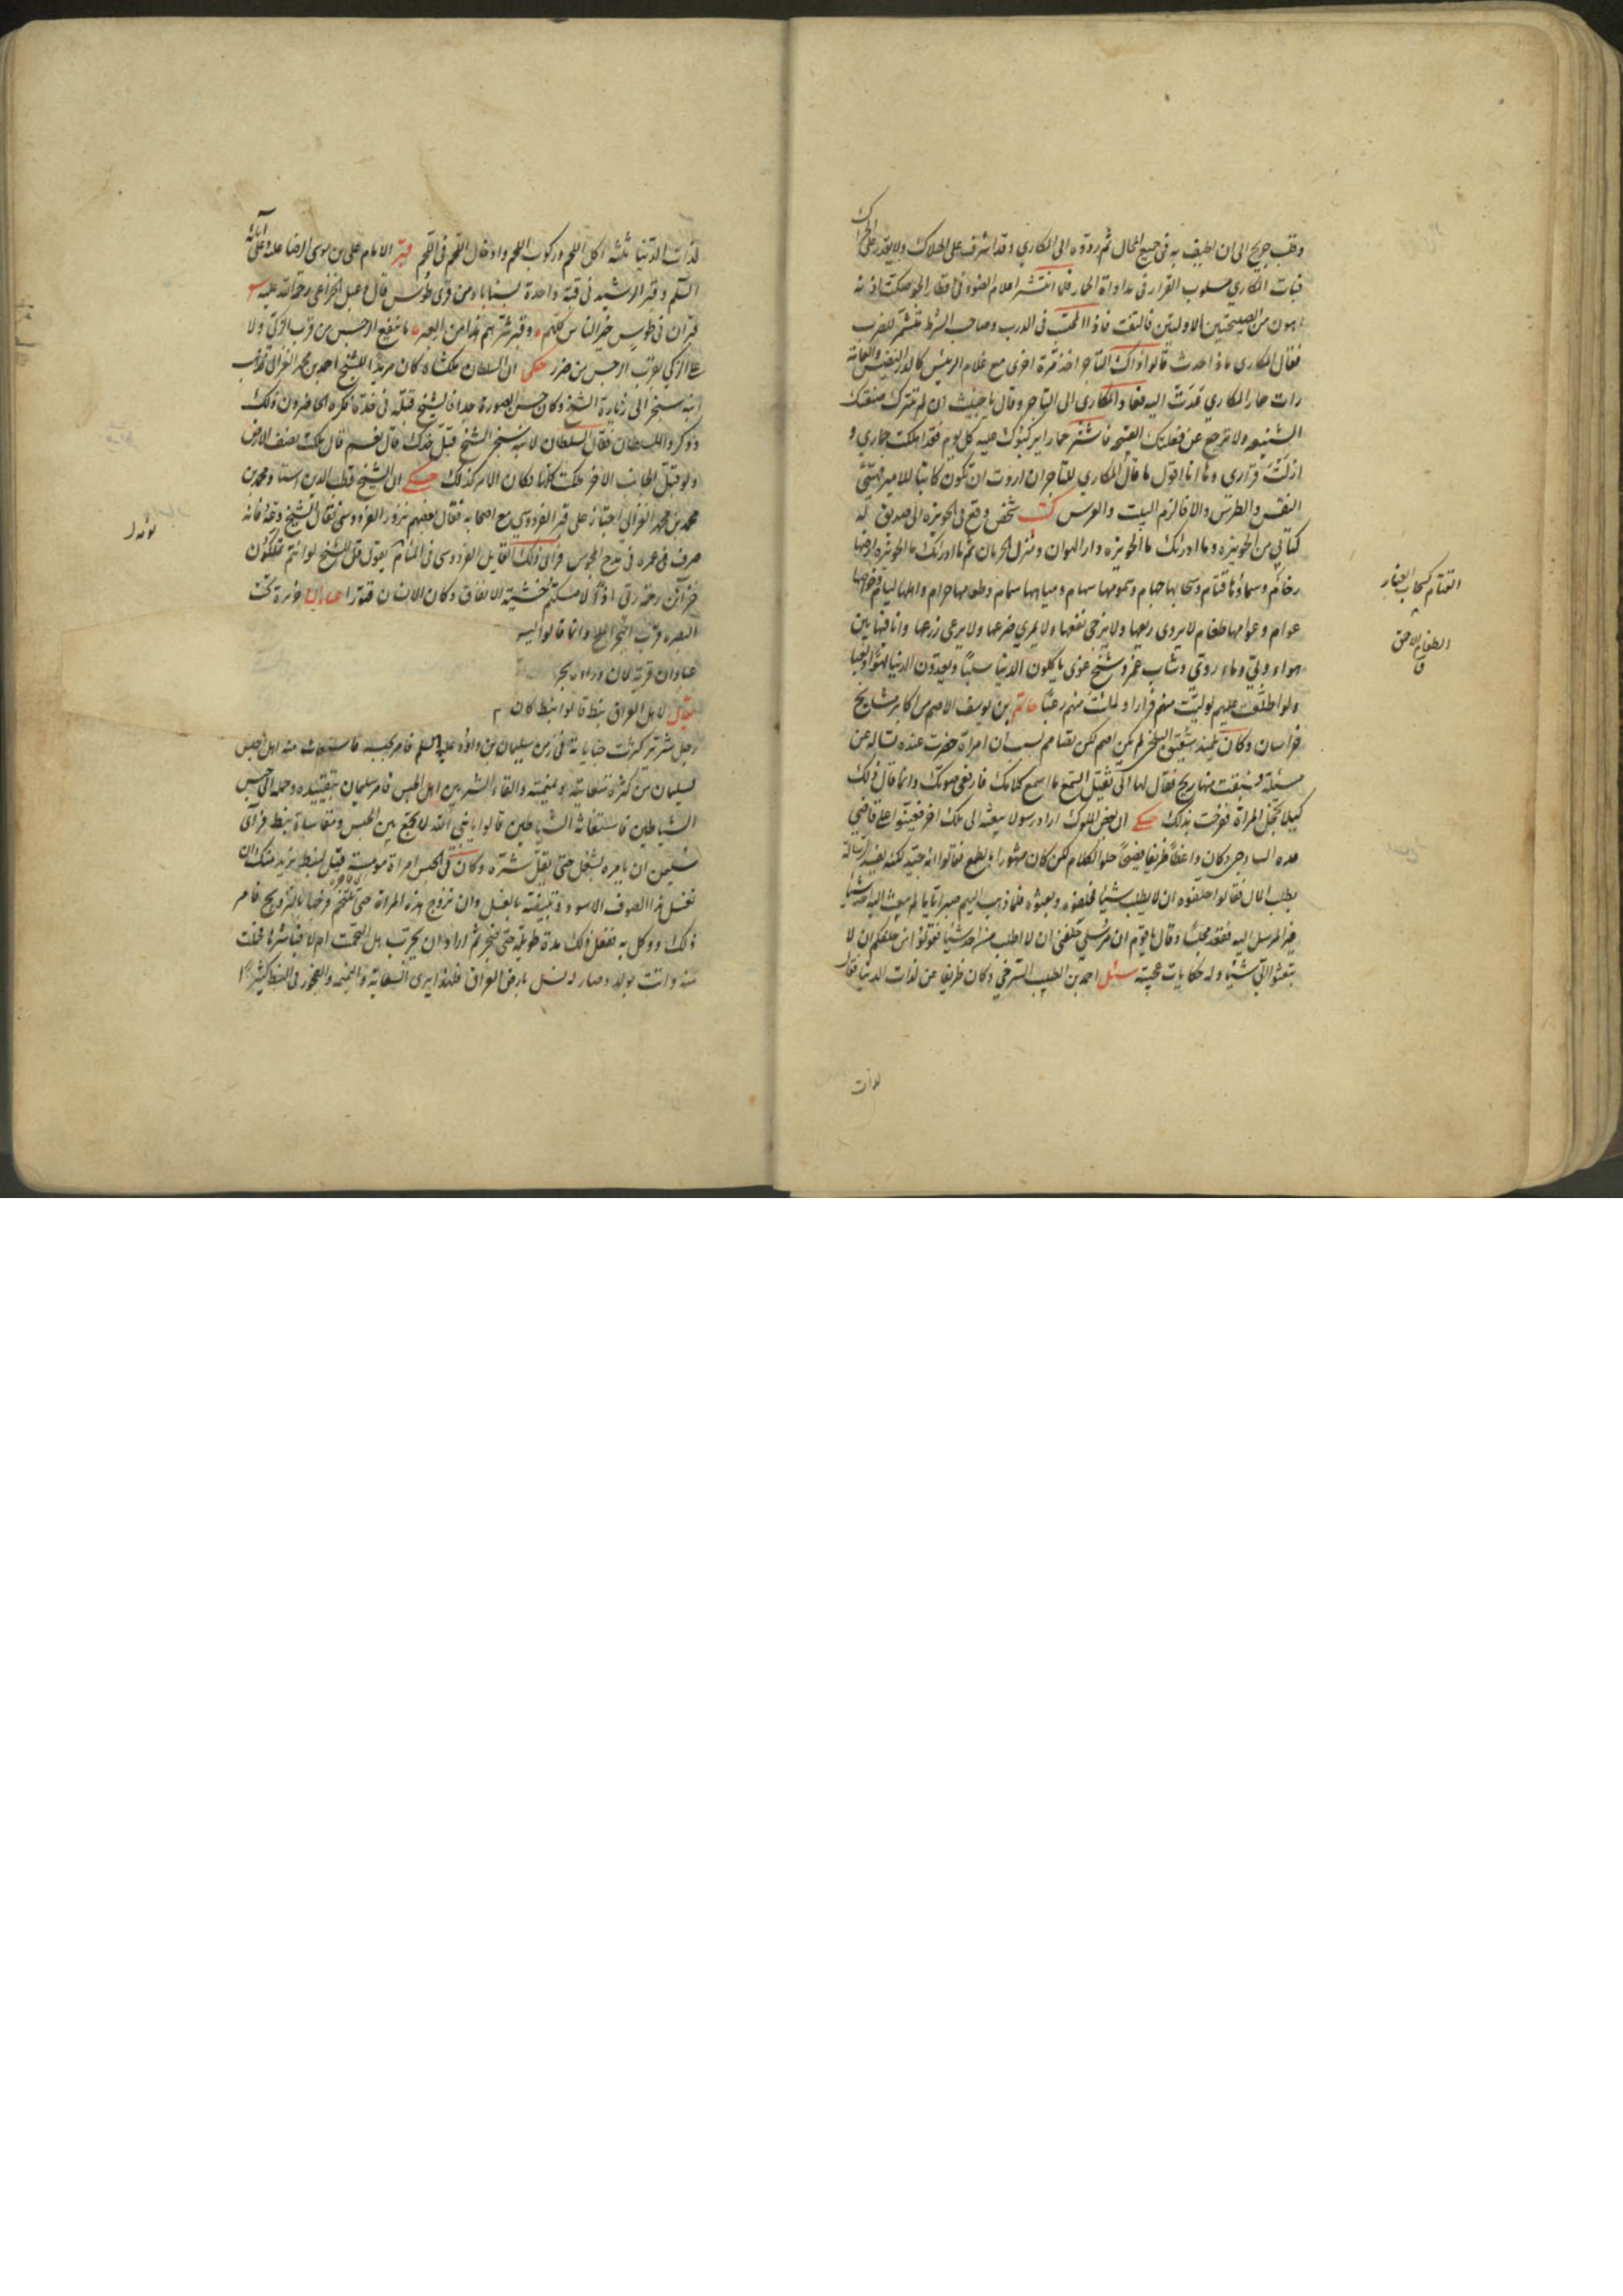 وقلب جريح الى ان اطيف به في جميع المحال ثم ردوه الى المكاري وقد اشرف على الهلاك ولا يقدر على الحراك
فبات المكاري مسلوب القرار في مداواة الحمار فلما انتشر اعلام الضوء في اقطار الجو صكت اذنه
اهون من الصيحتين الاوليين فالتفت فاذا المحتسب في الدرب وصاحب الشرط متشمر للضرب
فقال المكاري ماذا حدث قالوا ذاك التاجر اخذ مرة اخرى مع غلام الرئيس
حمار المكاري اليه فعاد المكاري الى التاجر وقال يا خبيث ان لم تترك صنعتك
الشنيعه ولا ترجع عن فعلتك القبيحه فاشتر حمارا يركبونك عليه كل يوم فقد اهلكت حماري و
ازلت قراري وها انا اقول ما قال المكاري للتاجر ان اردت ان تكون كاتبا للامير
النقس والطرس والا فالزم البيت والعرس كتب شخص وقع في الحويزه الى صديق له
كتابي من الحويزه وما ادراك ما الحويزه دار الهوان ومنزل الحرمان ثم ما ادراك ما الحويزه ارضها
رغام وسماؤها قتام وسحابها جهام وسمومها سهام ومياهها سمام وطعامها حرام واهلها لئام وخواصها
عوام وعوامها طغام لا يروى ربعها ولا يرجى نفعها ولا يمرى ضرعها ولا يرعى زرعها وانا فيها بين
هواء ردي وماء روي وشاب غمر وشيخ غوي ياكلون الدنيا سلبا ويعدون الدنيا لهوا ولعبا
ولو اطلعت عليهم لوليت منهم فرارا ولملئت منهم رعبا حاتم بن يوسف الاصم من اكابر مشايخ
خراسان وكان تلميذ شقيق البلخي لم يكن اصم لكن تصامم بسبب ان امراة حضرت عنده تساله عن
مسئلة فسبقت منها ريح فقال لها اني ثقيل السمع ما اسمع كلامك فارفعي صوتك وانما قال ذلك
كيلا تخجل المراة ففرحت بذلك حكي ان بعض الملوك اراد رسولا يبعثه الى ملك اخر فعينوا على قاضي
وكان واعظا ظريفا فصيحا حلو الكلام لكن كان مشهورا بالطمع فقالوا انه جيد لكنه
يطلب المال فقالوا حلفوه ان لا يطلب شيئا فحلفوه وبعثوه فلما ذهب اليهم صبر اياما لم يبعث اليه احد شيئا
المرسل اليه فعقد مجلسا وقال يا قوم ان مرسلي حلفني ان لا اطلب من احد شيئا فقولوا من حلفكم ان لا
تبعثوا الي شيئا وله حكايات عجيبة سئل احمد بن الطيب السرخسي وكان ظريفا عن لذات الدنيا فقال
لذات
القتام كسحاب الغبار
الطغام الاحمق
ق
لذات الدنيا ثلثة اكل اللحم وركوب اللحم وادخال اللحم في اللحم قبر الامام علي بن موسى الرضا عليه وعلى آبائه
السلم وقبر الرشيد في قبة واحدة بسناباد من قرى طوس قال دعبل الخزاعي رحمة الله عليه
قبران في طوس خير الناس كلهم وقبر شرهم هذا من العبر ما ينفع الرجس من قرب الزكي ولا
على الزكي بقرب الرجس من ضرر حكى ان السلطان ملكشاه كان مريدا للشيخ احمد بن محمد الغزالي فذهب
ابنه سنجر الى زيارة الشيخ وكان حسن الصورة جدا فالشيخ قبله في خده فكره الحاضرون ذلك
وذكروا للسلطان فقال السلطان لابنه سنجر الشيخ قبل خدك قال نعم قال ملكت نصف الارض
ولو قبل الجانب الاخر ملكت كلها فكان الامر كذلك حكي ان الشيخ قطب الدين استاذ محمد بن
محمد بن محمد الغزالي اجتاز على قبر الفردوسي مع اصحابه فقال بعضهم نزور الفردوسي فقال الشيخ دعه فانه
صرف عمره في مدح المجوس فراى ذلك القايل الفردوسي في المنام يقول قل للشيخ لو انتم تملكون
خزائن رحمة ربي اذا لامسكتم خشية الانفاق وكان الانسان قتورا عبادان جزيرة تحت
البصره قرب البحر الملح وانما قالوا ليس
عبادان قرية لان وراءه بحر
يقال لاهل العراق نبط قالوا نبط كان
رجل شرير كثرت جناياته في زمن سليمان بن داؤد عليهما السلم فامر بحبسه فاستغاث منه اهل الحبس
لسليمان من كثرة سعايته ونميمته والقاء الشر بين اهل الحبس فامر سليمان بتقييده وحمله الى حبس
الشياطين فاستغاثه الشياطين قالوا يا نبي الله لا تجمع بين الحبس ومقاساة نبط فراى
سليمن ان يامره بشغل حتى يقل شره وكان في الحبس امراة مومسة فقيل لنبط نريد منك ان
تغسل هذا الصوف الاسود وتبيضه بالغسل وان تزوج هذه المراة حتى تلتحم فرجها بالتزويج فامر
ذلك ووكل به ففعل ذلك مدة طويلة حتى ضجر ثم اراد ان يجرب هل التحمت ام لا فباشرها فحملت
منه واتت بولد وصار له نسل بارض العراق فلهذا يرى السعاية والنميمه والفجور في النبط كثيرا